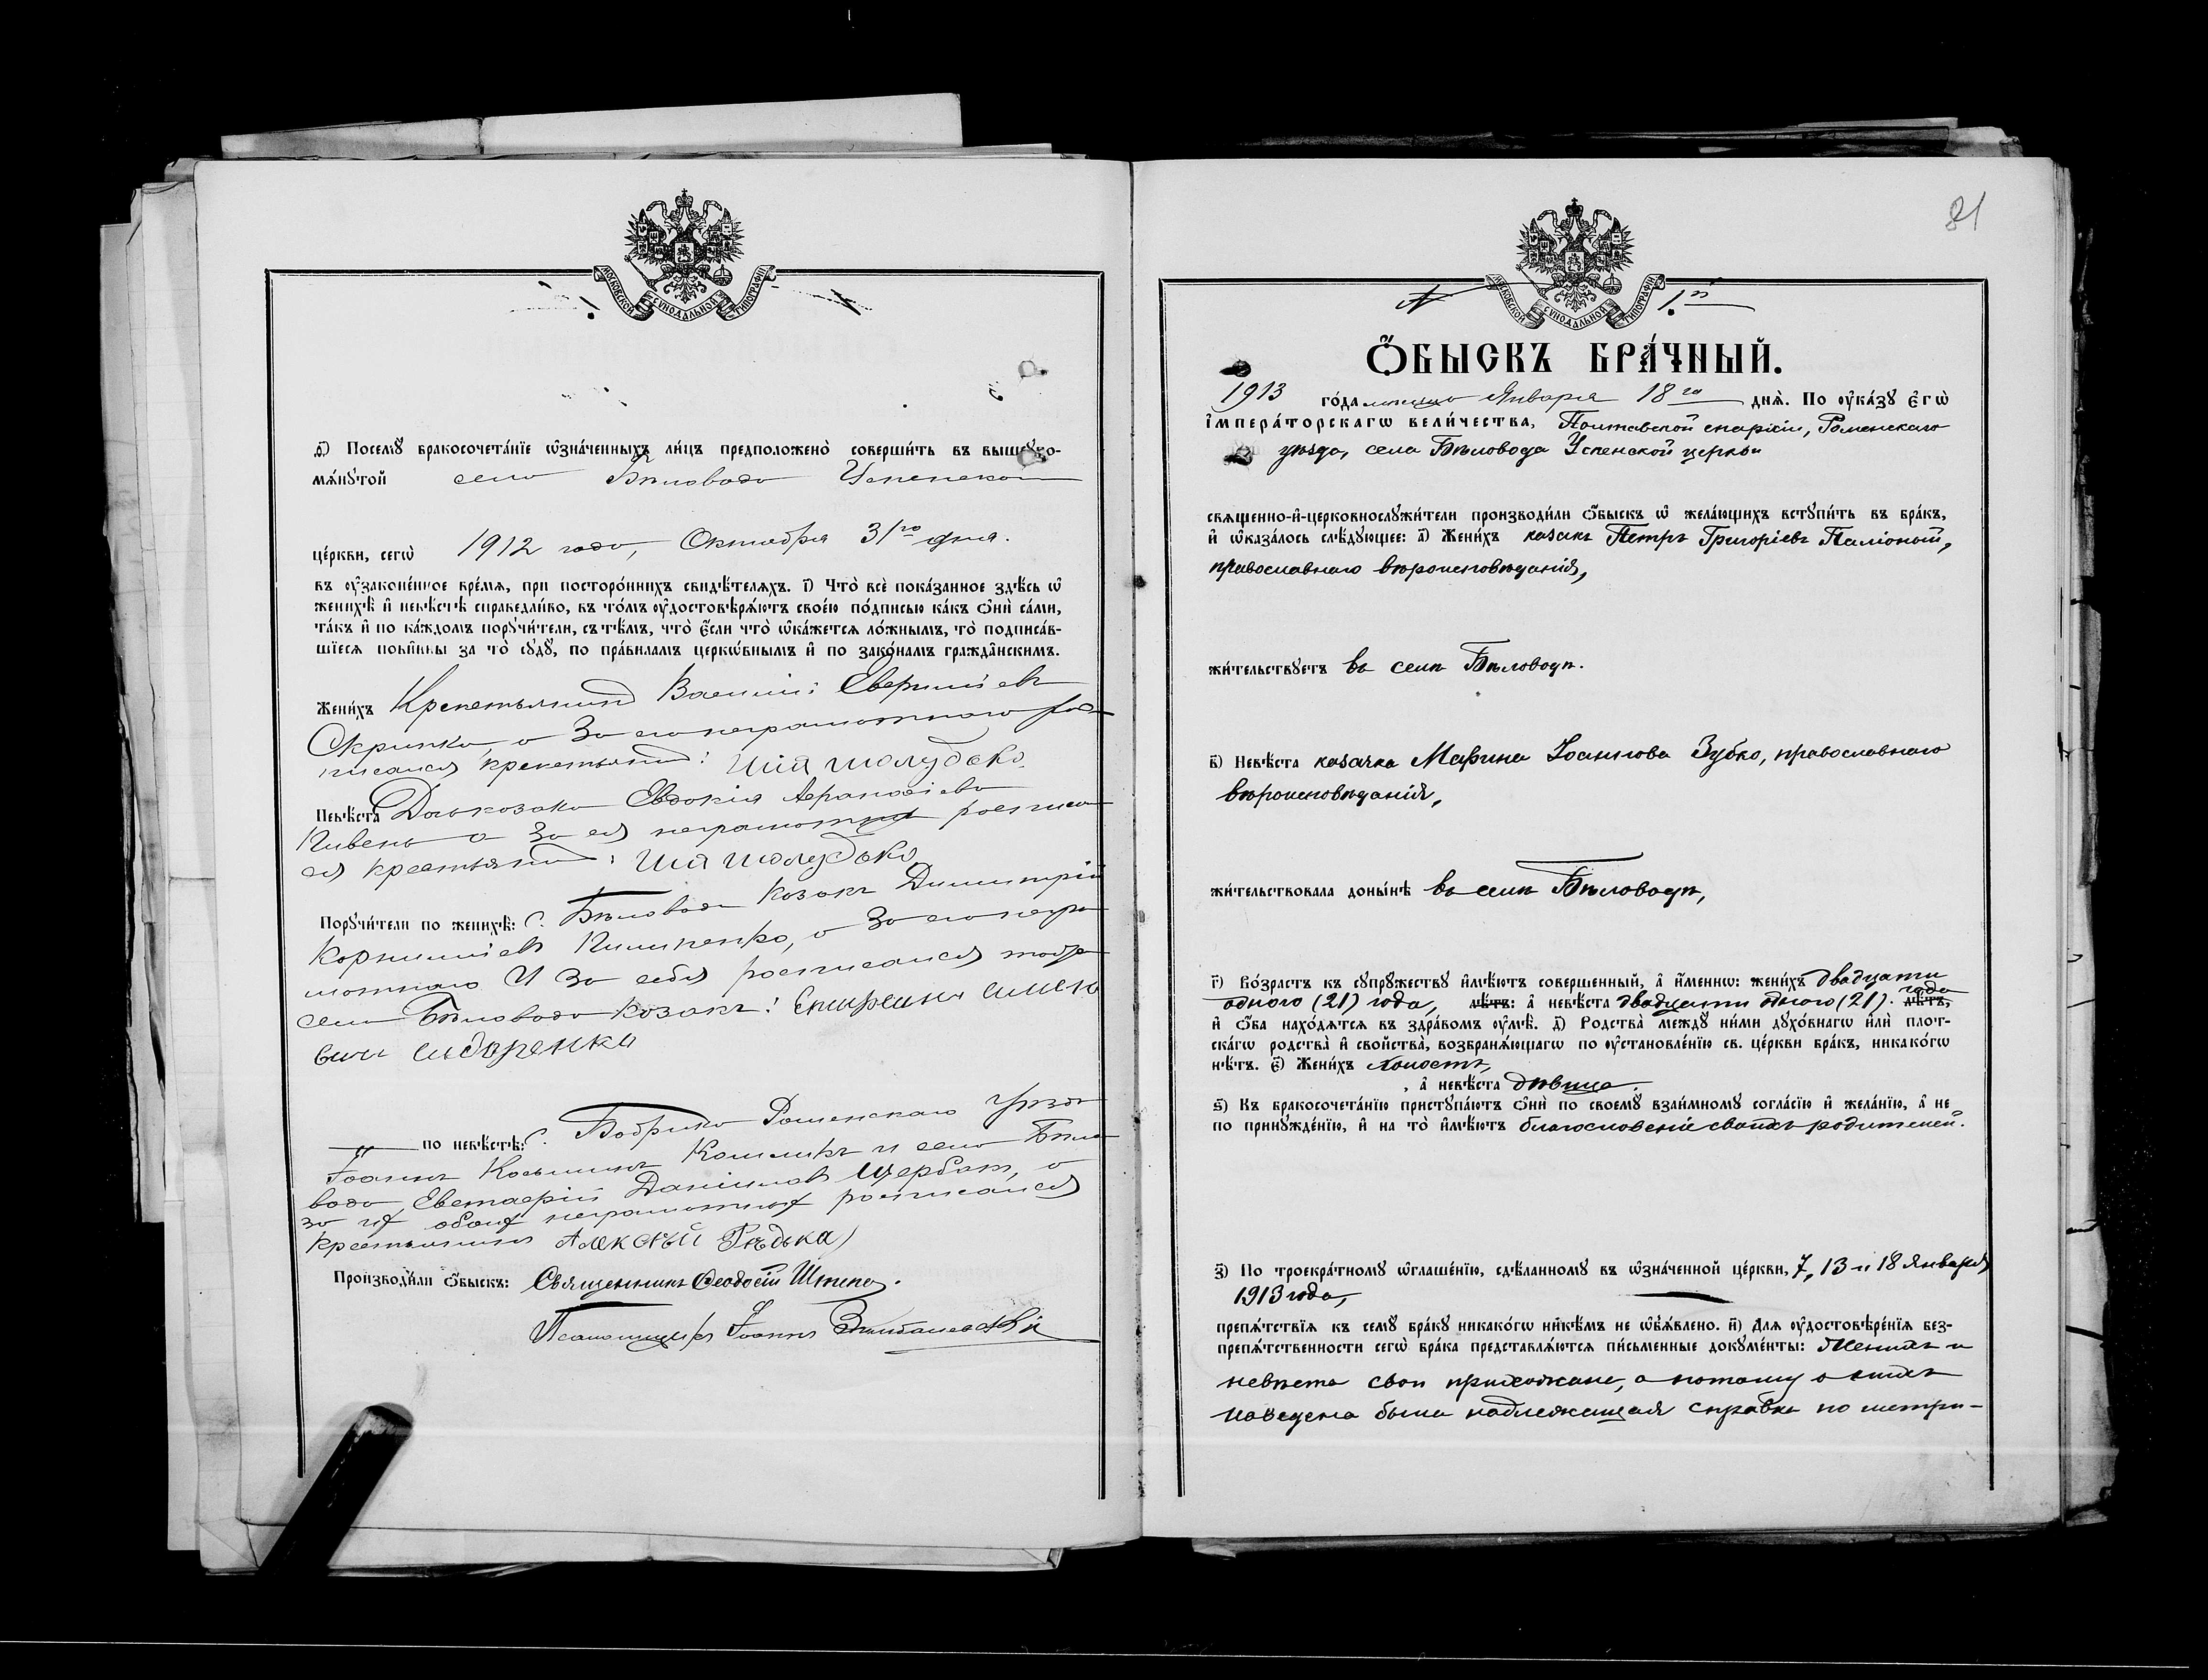 МОСКОВСКОЙ СѴНОДАЛЬНОЙ ТИПОГРАФІИ
ѳ҃) Посемꙋ̀ бракосочета́нїе ѡ҆зна́ченныхъ ли́цъ предположено̀ соверши́ть въ вышеꙋпо-
мѧ́нꙋтой село Бѣловода Успенской
це́ркви, сегѡ̀ 1912 года, Октября 31го дня.
въ ᲂу҆зако́ненное вре́мѧ, при посторо́ннихъ свидѣ́телѧхъ. і҃) Что̀ всѐ пока́занное здѣ́сь ѡ҆
женихѣ̀ и҆ невѣ́стѣ справедли́во, въ то́мъ ᲂу҆достовѣрѧ́ютъ свое́ю по́дписью ка́къ ѻ҆нѝ са́ми,
та́къ и҆ по ка́ждомъ порꙋчи́тели, съ тѣ́мъ, что̀ є҆́сли что̀ ѡ҆ка́жетсѧ ло́жнымъ, то̀ подписа́в-
шїесѧ пови́нны за то̀ сꙋдꙋ̀, по пра́виламъ церкѡ́внымъ и҆ по зако́намъ гражда̑нскимъ.
Жени́хъ Крестьянинъ Василій
Скрипка, а за его неграмотного рос-
писался крестьянинъ:
Невѣ́ста Дочь козака Евдокія Афанасіева
Кивень а за ея неграмотную росписал
ся крестьянинъ:
Порꙋчи́тели по женихѣ̀: с. Бѣловода козакъ Димитрій
Корниліевъ Пилипенко, а за его негра
мотнаго и за себя росписался тогоже
села Бѣловода козакъ: Спиридонъ
сидоренко
по невѣ́стѣ: с. Бобрика Роменскаго уѣзда
Іоаннъ Косьминъ и села Бѣло
вода, Евстафій Даніиловъ Щербак, а
за их обоих неграмотных росписался
крестьянинъ Алексѣй Рѣдька
Производи́ли ѻ҆́быскъ: Священникъ Ѳеодосій Штепа.
Псаломщикъ Іоаннъ
81
МОСКОВСКОЙ СѴНОДАЛЬНОЙ ТИПОГРАФІИ
N 1.й
Ѻ҆́БЫСКЪ БРА́ЧНЫЙ.
1913 го́да мѣсяца Января 18го днѧ̀. По ᲂу҆ка́зꙋ є҆гѡ̀
і҆мпера́торскагѡ вели́чества, Полтавской епархіи, Роменскаго
уѣзда, села Бѣловода Успенской церкви
свѧще́нно-и҆-церковнослꙋжи́тели производи́ли ѻ҆́быскъ ѡ҆ жела́ющихъ встꙋпи́ть въ бра́къ,
и҆ ѡ҆каза́лось слѣ́дꙋющее: а҃) Жени́хъ казакъ Петръ Григоріевъ Паліоный,
православнаго вѣроисповѣданія,
жи́тельствꙋетъ въ селѣ Бѣловодѣ.
в҃) Невѣ́ста казачка Марина Іоаннова Зубко, православнаго
вѣроисповѣданія,
жи́тельствовала доны́нѣ въ селѣ Бѣловодѣ,
г҃) Во́зрастъ къ сꙋпрꙋ́жествꙋ и҆мѣ́ютъ соверше́нный, а҆ и҆́менно: жени́хъ двадцати
одного (21) года, лѣ́тъ: а҆ невѣ́ста двадцати одного (21). года лѣ́тъ,
и҆ ѻ҆́ба нахо́дѧтсѧ въ здра́вомъ ᲂу҆мѣ̀. д҃) Родства̀ мeждꙋ̀ ни́ми дꙋхо́внагѡ и҆лѝ плот-
ска́гѡ родства̀ и҆ сво́йства̀, возбранѧ́ющагѡ по ᲂу҆становле́нїю св. це́ркви бра́къ, никако́гѡ
нѣ́тъ. є҃) Жени́хъ холостъ,
, а҆ невѣ́ста дѣвица.
ѕ҃) Къ бракосочета́нїю пристꙋпа́ютъ ѻ҆нѝ по своемꙋ̀ взаи́мномꙋ согла́сїю и҆ жела́нїю, а҆ не
по принꙋжде́нїю, и҆ на то̀ и҆мѣ́ютъ благословеніе своихъ родителей.
з҃) По троекра́тномꙋ ѡ҆глаше́нїю, сдѣ́ланномꙋ въ ѡ҆зна́ченной це́ркви, 7, 13 и 18 Января
1913 года,
препѧ́тствїѧ къ семꙋ̀ бра́кꙋ никако́гѡ никѣ́мъ не ѡ҆б̾ѧ́влено. и҃) Длѧ ᲂу҆достовѣре́нїѧ без-
препѧ́тственности сегѡ̀ бра́ка представлѧ́ютсѧ пи́сьменные докꙋме́нты: Женихъ и
невѣста свои прихожане, а потому о нихъ
наведена была надлежащая справка по метри-